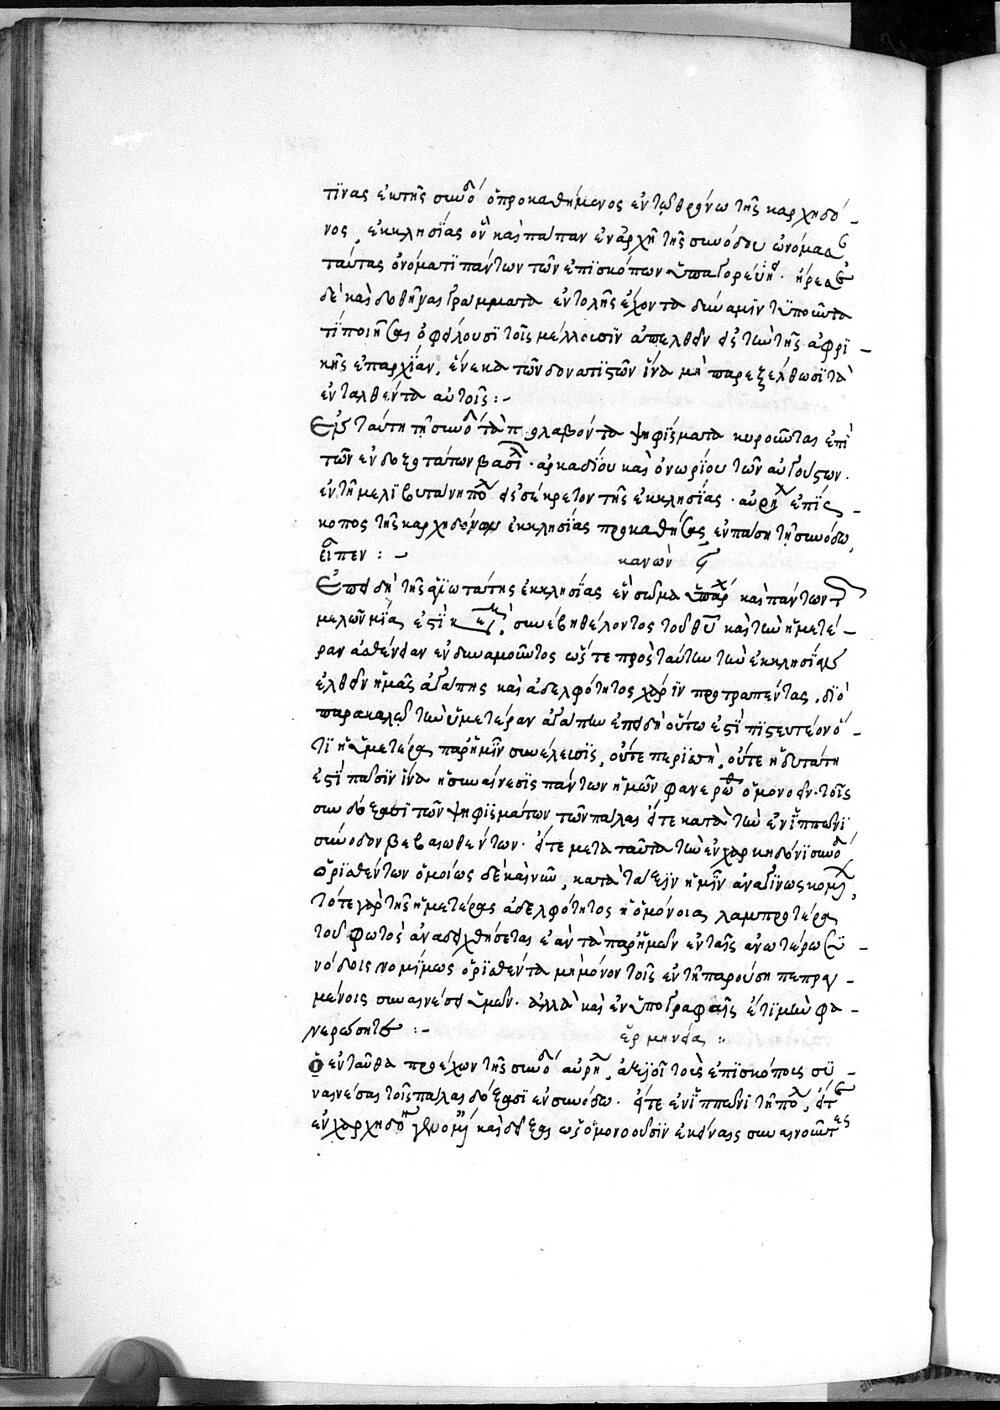 τϊνας ἐκ τῆς συνόδ ὁ προκαθήμενος ἐν τῷ θρόνω τῆς καρχηδό-
νος ἐκκλησίας ὃν καὶ πάπαν ἐν ἀρχῆ τῆς συνόδου ὠνόμασ
ταύτας ὀνόματϊ πάντων τῶν ἐπϊσκόπων ὑπαγορεύση. ἤρεσ
δὲ καὶ δοθῆναι γράμματα ἐντολῆς ἔχοντα δύναμϊν τυποῦντα
τί ποιῆσαι ὀφείλουσϊ τοῖς μέλλουσϊν ἀπελθεῖν εἰς τὴν τῆς ἀφρϊ-
κῆς ἐπαρχΐαν, ἕνεκα τῶν δονατιστῶν ἵνα μὴ παρεξέλθωσϊ τὰ
ἐνταλθέντα αὐτοῖς :-
Ἐν ταύτη τῆ συνόδ τὰ προλαβόντα ψηφίσματα κυροῦται ἐπὶ
τῶν ἐνδοξοτάτων βασιλ. ἀρκαδΐου καὶ ὀνωρΐου τῶν αὐγούστων.
ἐν τῆ μελϊβυτάνη πόλ εἰς σέκρετον τῆς ἐκκλησίας. αὐρήλ ἐπΐς-
κοπος τῆς καρχηδόνου ἐκκλησίας προκαθήσας ἐν πάση τῆ συνόδω,
εἶπεν :- κανὼν ς
Ἐπειδὴ τῆς ἁγιωτάτης ἐκκλησίας ἓν σῶμα ὑπάρχ καὶ πάντων τ
μελῶν μΐα ἐστὶ κεφ, συνέβη θέλοντος τοῦ θυ καὶ τὴν ἡμετέ-
ραν ἀσθένειαν ἐνδυναμοῦντος ὥστε πρὸς ταύτην τὴν ἐκκλησίαν
ἐλθεῖν ἡμᾶς ἀγάπης καὶ ἀδελφότητος χάρϊν προτραπέντας, δϊὸ
παρακαλῶ τὴν ὑμετέραν ἀγάπην ἐπειδὴ οὕτω ἐστὶ πϊστευτέον ὅ-
τϊ ἡ ὑμετέρα παρ' ἡμῖν συνέλευσϊς, οὔτε περϊττὴ, οὔτε ἡδυτάτη
ἐστὶ πᾶσϊν ἵνα ἡ συναίνεσϊς πάντων ἡμῶν φανερωθ ὁμονοεῖν τοῖς
συνδόξασϊ τῶν ψηφϊσμάτων τῶν πάλαι εἴτε κατὰ τὴν ἐν ἵππωνϊ
σύνοδον βεβαιωθέντων. εἴτε μετὰ ταῦτα τὴν ἐν χαρκηδόνϊ συνόδ
ὁρϊσθέντων ὁμοίως δὲ καὶ νῦν, κατὰ τάξϊν ἡμῖν ἀναγΐνωσκομ,
τότε γὰρ τῆς ἡμετέρας ἀδελφότητος ἡ ὁμόνοια λαμπροτέρα
τοῦ φωτὸς ἀναδειχθήσεται ἐὰν τὰ παρ' ἡμῶν ἐν ταῖς ἀνωτέρω συ-
νόδοις νομΐμως ὁρϊσθέντα μὴ μόνον τοῖς ἐν τῆ παρούση πεπραγ-
μένοις συναινέσει ὑμῶν. ἀλλὰ καὶ ἐν ὑπογραφαῖς ἔτϊ μὴν φα-
νερώσητε :- ἑρμηνεία :-
Ὁ ἐνταῦθα προέχων τῆς συνόδ αὐρήλ, ἀξιοῖ τοὺς ἐπϊσκόπους συ-
ναινέσαι τοῖς πάλαι δόξασϊ ἐν συνόδω. εἴτε ἐν ἵππωνϊ τῆ πόλ, εἴτ
ἐν χαρχηδόν γενομ καὶ δεῖξαι ὡς ὁμονοοῦσϊν ἐκείναις συναινοῦντες